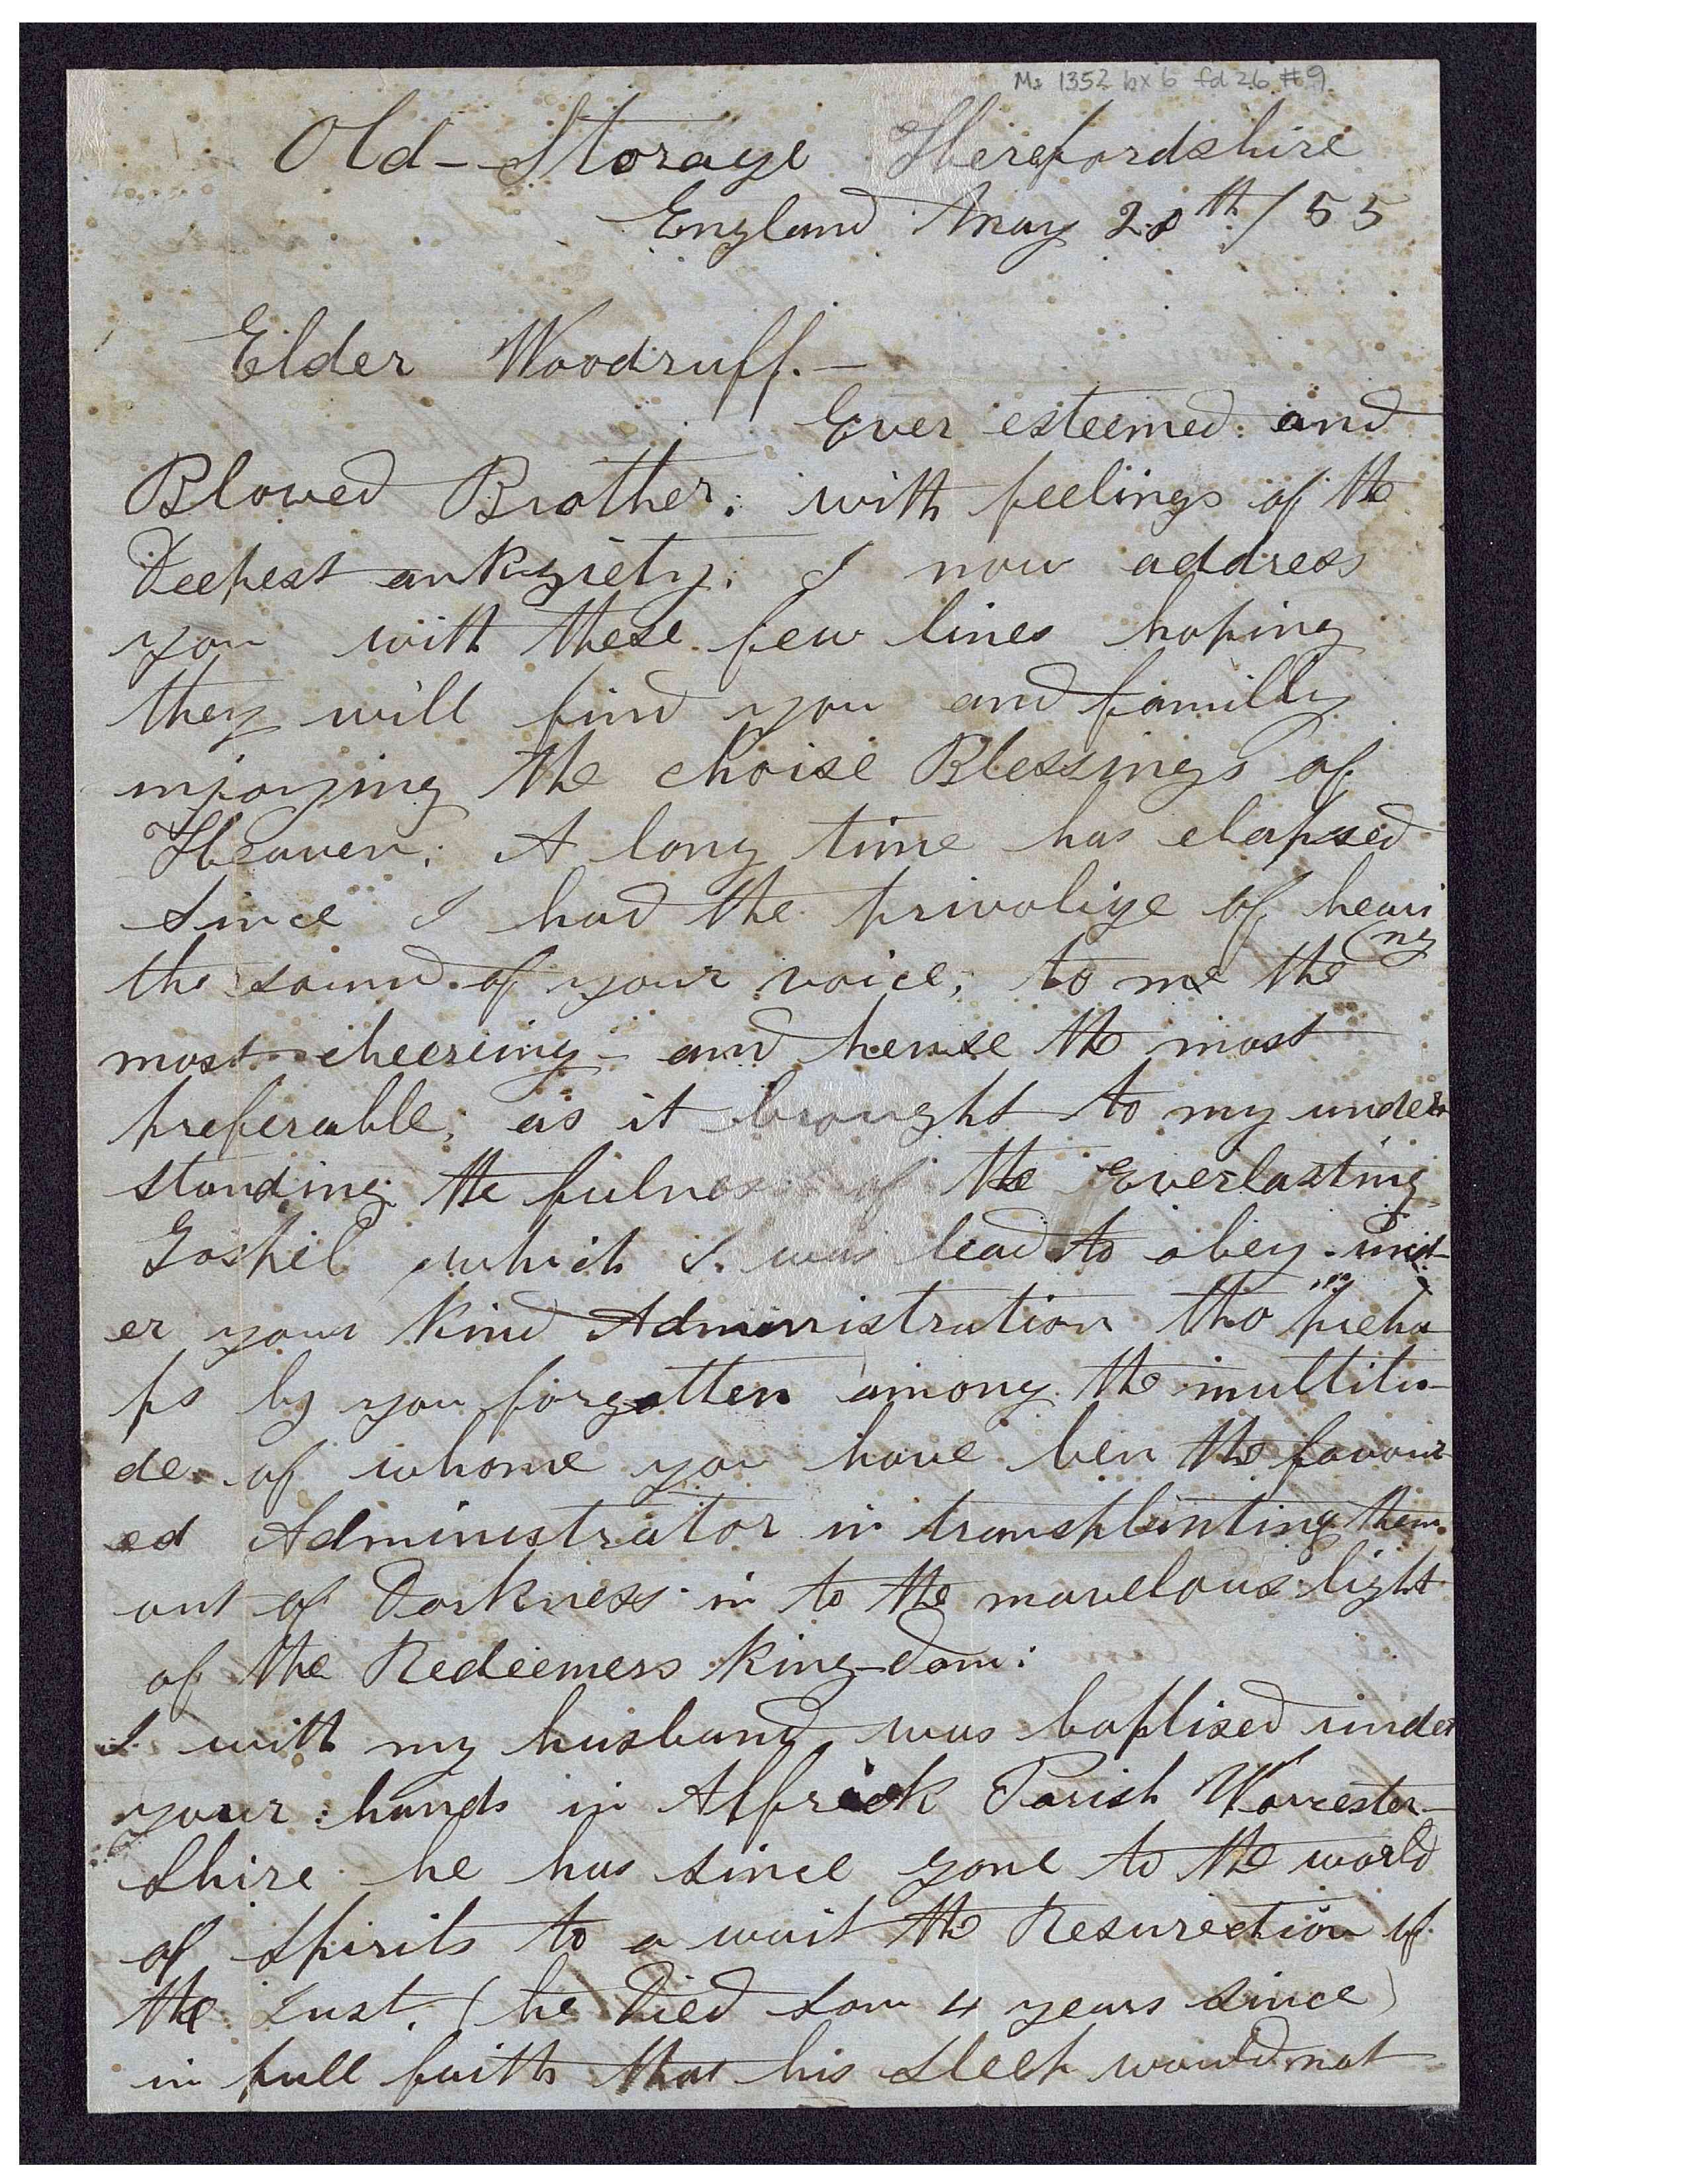 Ms 1352 bx 6 fd 26 #9
Old-Storage Herefordshire
England May 20th/55
Elder Woodruff.—
Ever esteemed and
Bloved Brother; with feelings of the
Deepest ankziety; I now address
you with these few lines hoping
they will find you and familly
injoying the choise Blessings of
Heaven; A long time has elapsed
since I had the privolige of heari
ng
the sound of your voice; to me the
most cheering - and hense the most
preferable; as it brought to my under
standing the fulness of the Everlasting
Gospel which I was lead to obey und
er your kind Administration tho preha
ps by you forgotten among the multitu-
de of whome you have ben the favour
ed Administrator in transplanting them
out of Darkness in to the marvelous light
of the Redeemers King-dom:
I with my husband was baptised under
your hands in Alfrick Parish Worrester-
shire he has since gone to the world
of spirits to a wait the Resurection of
the Just. (he Died som 4 years since)
in full faith that his sleep would not